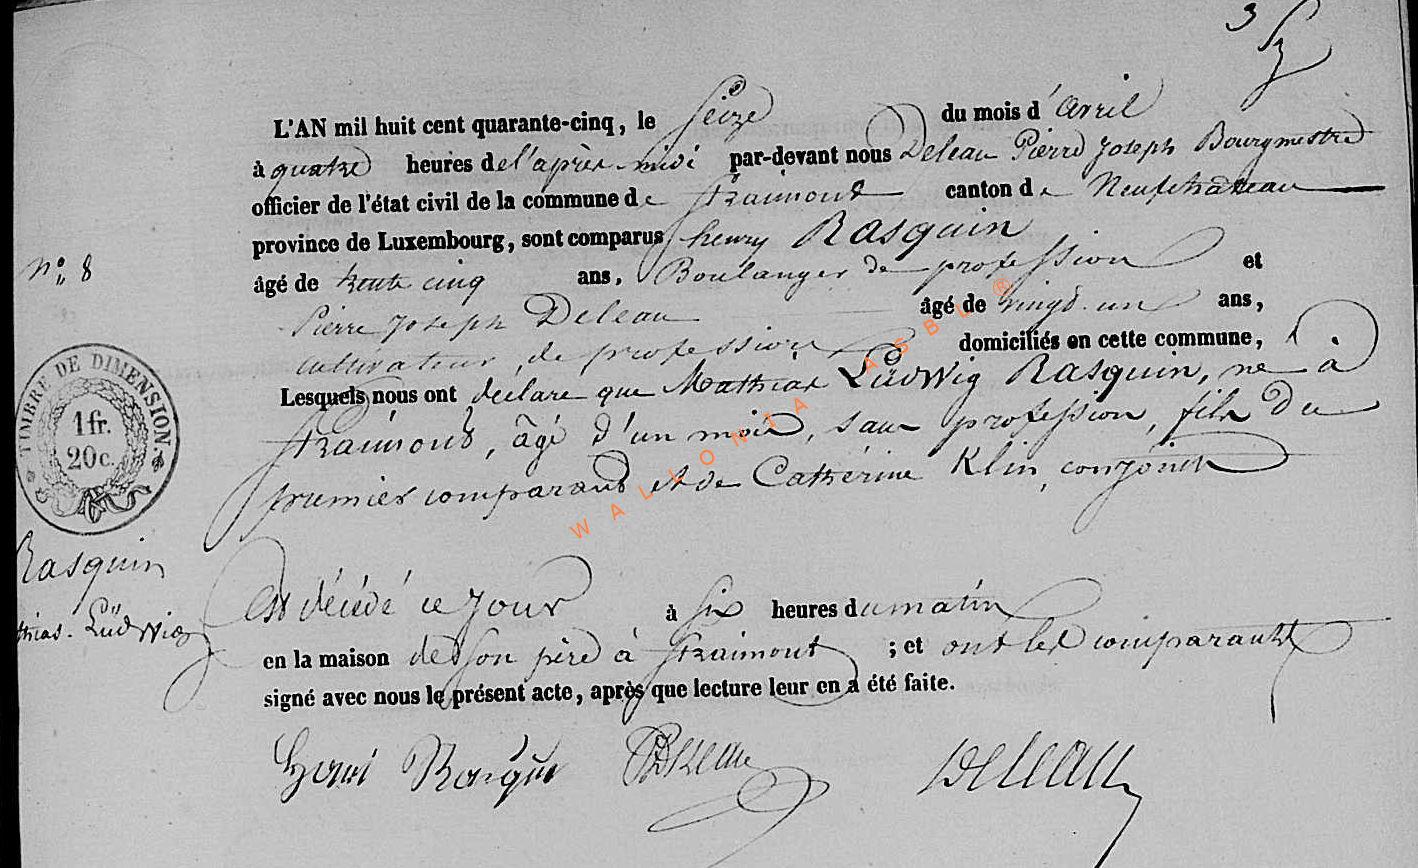 3
L'AN mil huit cent quarante-cinq, le Seize du mois d'avril
à quatre heures de l'après-midi par-devant nous Deleau Pierre Joseph Bourgmestre
officier de l'état civil de la commune de Straimont canton de Neufchâteau
province de Luxembourg, sont comparus henry Rasquin
N° 8
âgé de trente cinq ans, Boulanger de profession et
Pierre Joseph Deleau âgé de vingt-un ans,
cultivateur, de profession domiciliés en cette commune,
Lesquels nous ont déclaré que Mathias Lüdwig Rasquin, né à
Straimont, âgé d'un mois, sans profession, fils du
premier comparant et de Cathérine Klin, conjoints
TIMBRE DE DIMENSION
1 fr.
20 c.
WALLONIA ASBL ®
Rasquin
thias. Lüdwig
Est décédé ce jour à six heures du matin
en la maison de son père à Straimont ; et ont les comparants
signé avec nous le présent acte, après que lecture leur en a été faite.
Henri Rasquin PJDeleau Deleau